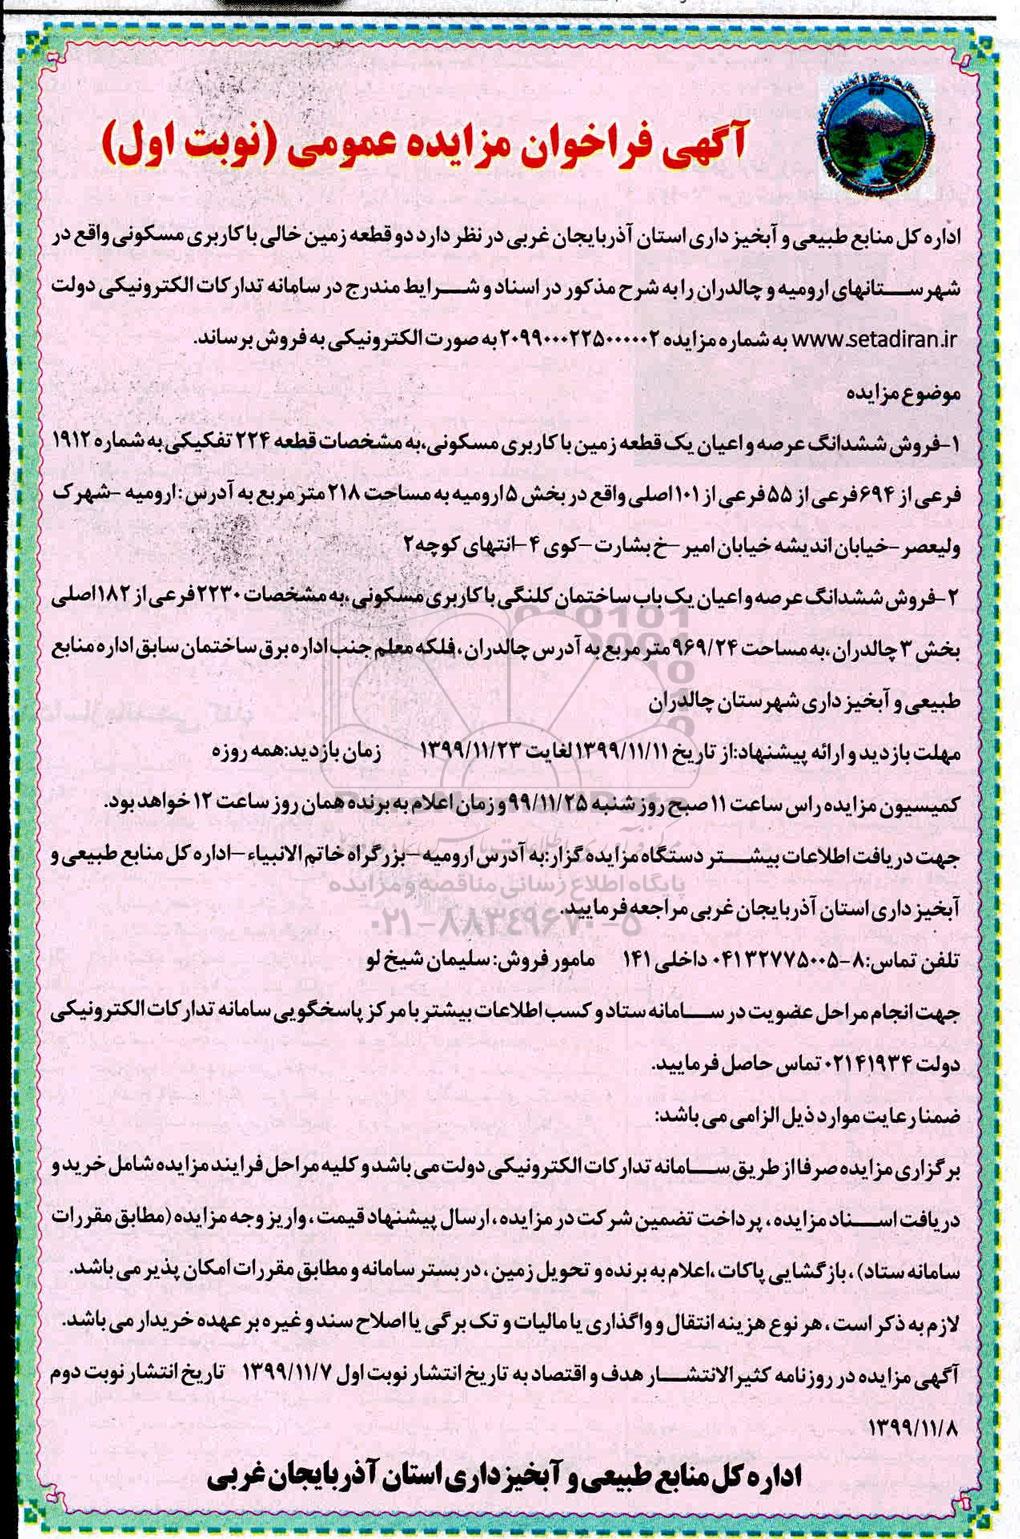 آگهی فراخوان مزایده عمومی (نوبت اول)
اداره کل منابع طبیعی و آبخیز داری استان آذربایجان غربی در نظر دارد دو قطعه زمین خالی با کاربری مسکونی واقع در
شهرستانهای ارومیه و چالدران را به شرح مذکور در اسناد و شرایط مندرج در سامانه تدارکات الکترونیکی دولت
www.setadiran.ir به شماره مزایده ۲۰۹۹۰۰۰۲۲۵۰۰۰۰۰۲ به صورت الکترونیکی به فروش برساند.
موضوع مزایده
۱-فروش ششدانگ عرصه و اعیان یک قطعه زمین با کاربری مسکونی،به مشخصات قطعه ۲۲۴ تفکیکی به شماره ۱۹۱۲
فرعی از ۶۹۴ فرعی از ۵۵ فرعی از ۱۰۱ اصلی واقع در بخش ۵ ارومیه به مساحت ۲۱۸ متر مربع به آدرس : ارومیه -شهرک
ولیعصر -خیابان اندیشه خیابان امیر -خ بشارت -کوی ۴ -انتهای کوچه ۲
۲-فروش ششدانگ عرصه و اعیان یک باب ساختمان کلنگی با کاربری مسکونی ،به مشخصات ۲۲۳۰ فرعی از ۱۸۲ اصلی
بخش ۳ چالدران ،به مساحت ۹۶۹/۲۴ متر مربع به آدرس چالدران ، فلکه معلم جنب اداره برق ساختمان سابق اداره منابع
طبیعی و آبخیز داری شهرستان چالدران
مهلت بازدید و ارائه پیشنهاد:از تاریخ ۱۳۹۹/۱۱/۱۱ لغایت ۱۳۹۹/۱۱/۲۳ زمان بازدید:همه روزه
کمیسیون مزایده راس ساعت ۱۱ صبح روز شنبه ۹۹/۱۱/۲۵ و زمان اعلام به برنده همان روز ساعت ۱۲ خواهد بود.
جهت دریافت اطلاعات بیشتر دستگاه مزایده گزار:به آدرس ارومیه -بزرگراه خاتم الانبیاء -اداره کل منابع طبیعی و
پایگاه اطلاع رسانی مناقصه و مزایده
آبخیز داری استان آذربایجان غربی مراجعه فرمایید.
۰۲۱-۸۸۳۴۹۶۷۰-۵
تلفن تماس:۸-۰۴۱۳۲۷۷۵۰۰۵ داخلی ۱۴۱ مامور فروش: سلیمان شیخ لو
جهت انجام مراحل عضویت در سامانه ستاد و کسب اطلاعات بیشتر با مرکز پاسخگویی سامانه تدارکات الکترونیکی
دولت ۰۲۱۴۱۹۳۴ تماس حاصل فرمایید.
ضمنا رعایت موارد ذیل الزامی می باشد:
برگزاری مزایده صرفا از طریق سامانه تدارکات الکترونیکی دولت می باشد و کلیه مراحل فرایند مزایده شامل خرید و
دریافت اسناد مزایده ، پرداخت تضمین شرکت در مزایده ، ارسال پیشنهاد قیمت ، واریز وجه مزایده (مطابق مقررات
سامانه ستاد) ، بازگشایی پاکات ،اعلام به برنده و تحویل زمین ، در بستر سامانه و مطابق مقررات امکان پذیر می باشد.
لازم به ذکر است ، هر نوع هزینه انتقال و واگذاری یا مالیات و تک برگی یا اصلاح سند و غیره بر عهده خریدار می باشد.
آگهی مزایده در روزنامه کثیرالانتشار هدف و اقتصاد به تاریخ انتشار نوبت اول ۱۳۹۹/۱۱/۷ تاریخ انتشار نوبت دوم
۱۳۹۹/۱۱/۸
اداره کل منابع طبیعی و آبخیزداری استان آذربایجان غربی